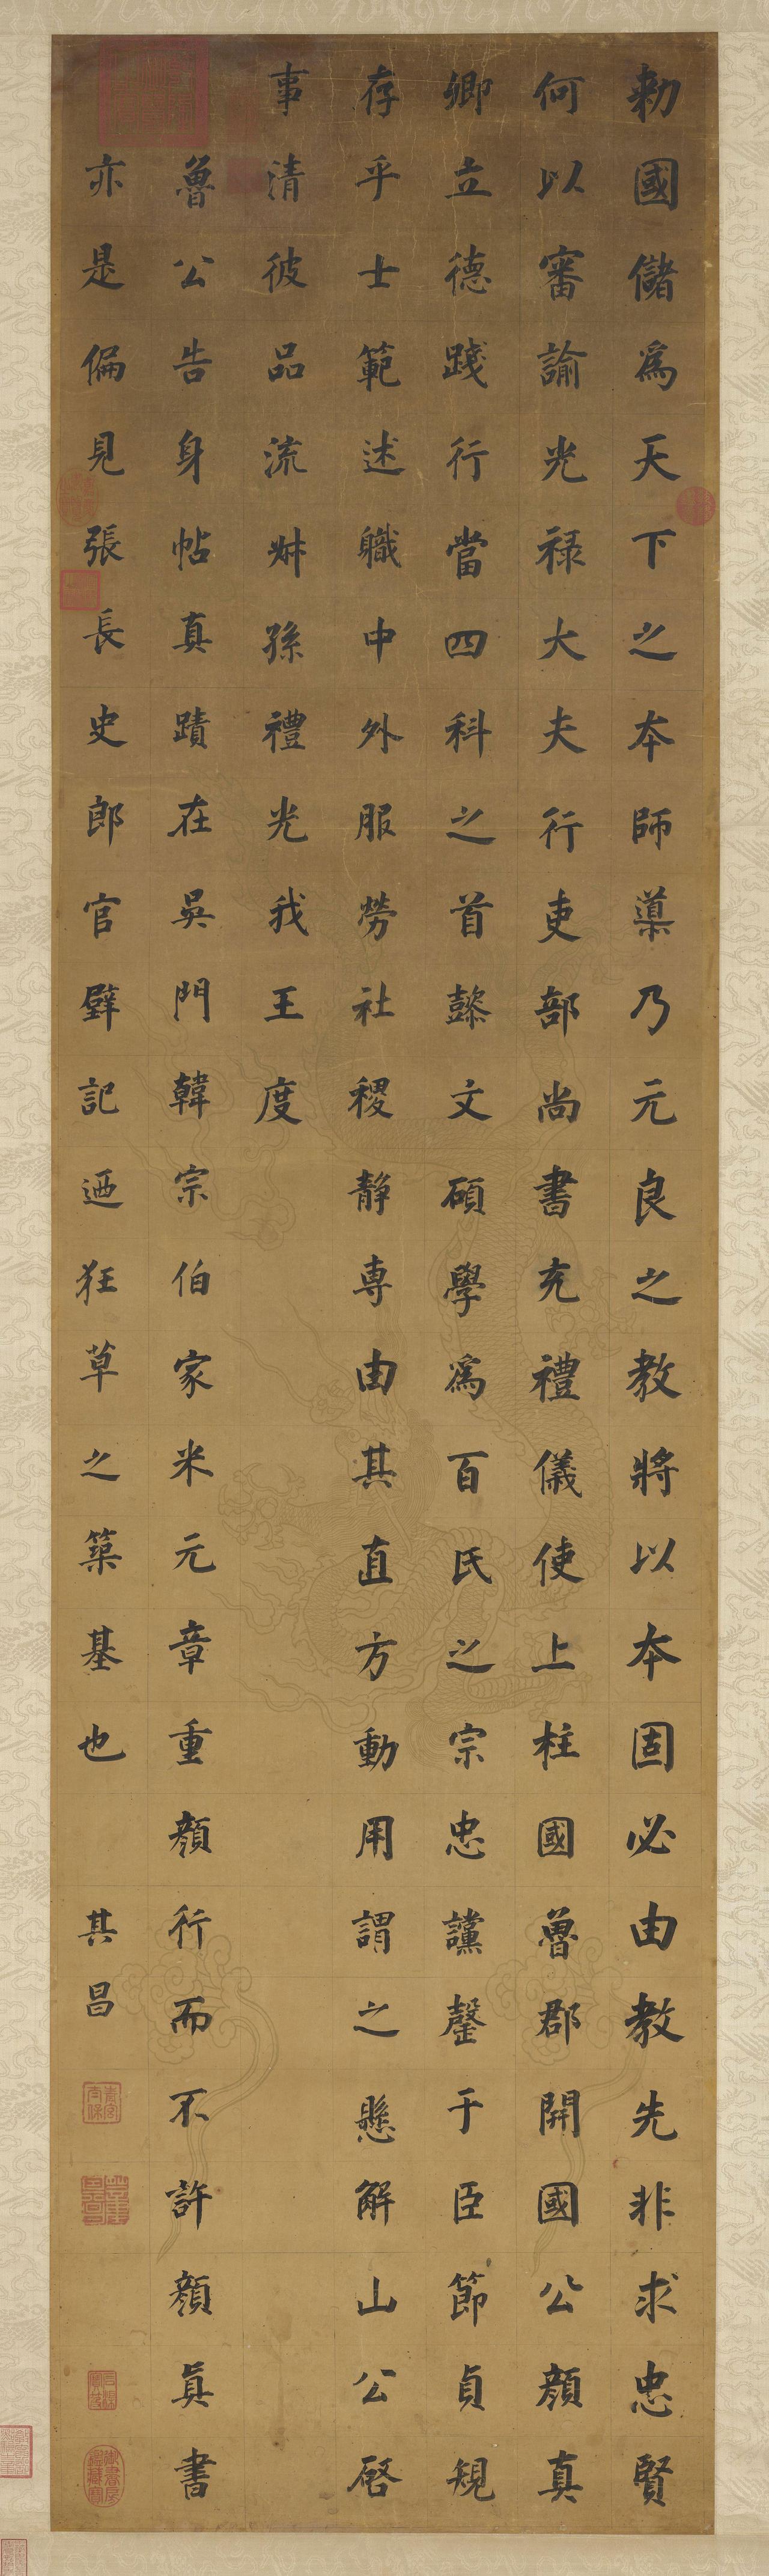 勑國儲為天下之本師導乃元良之教將以本固必由教先非求忠賢
何以審諭光禄大夫行吏部尚書充禮儀使上柱國魯郡開國公顏真
卿立德踐行當四科之首懿文碩學為百氏之宗忠讜罄于臣節貞規
存乎士範述職中外服勞社稷静專由其直方動用謂之懸解山公啓
事清彼品流叔孫禮光我王度
魯公告身帖真蹟在吳門韓宗伯家米元章重顏行而不許顏真書
亦是偏見張長史郎官壁記迺狂草之築基也 其昌